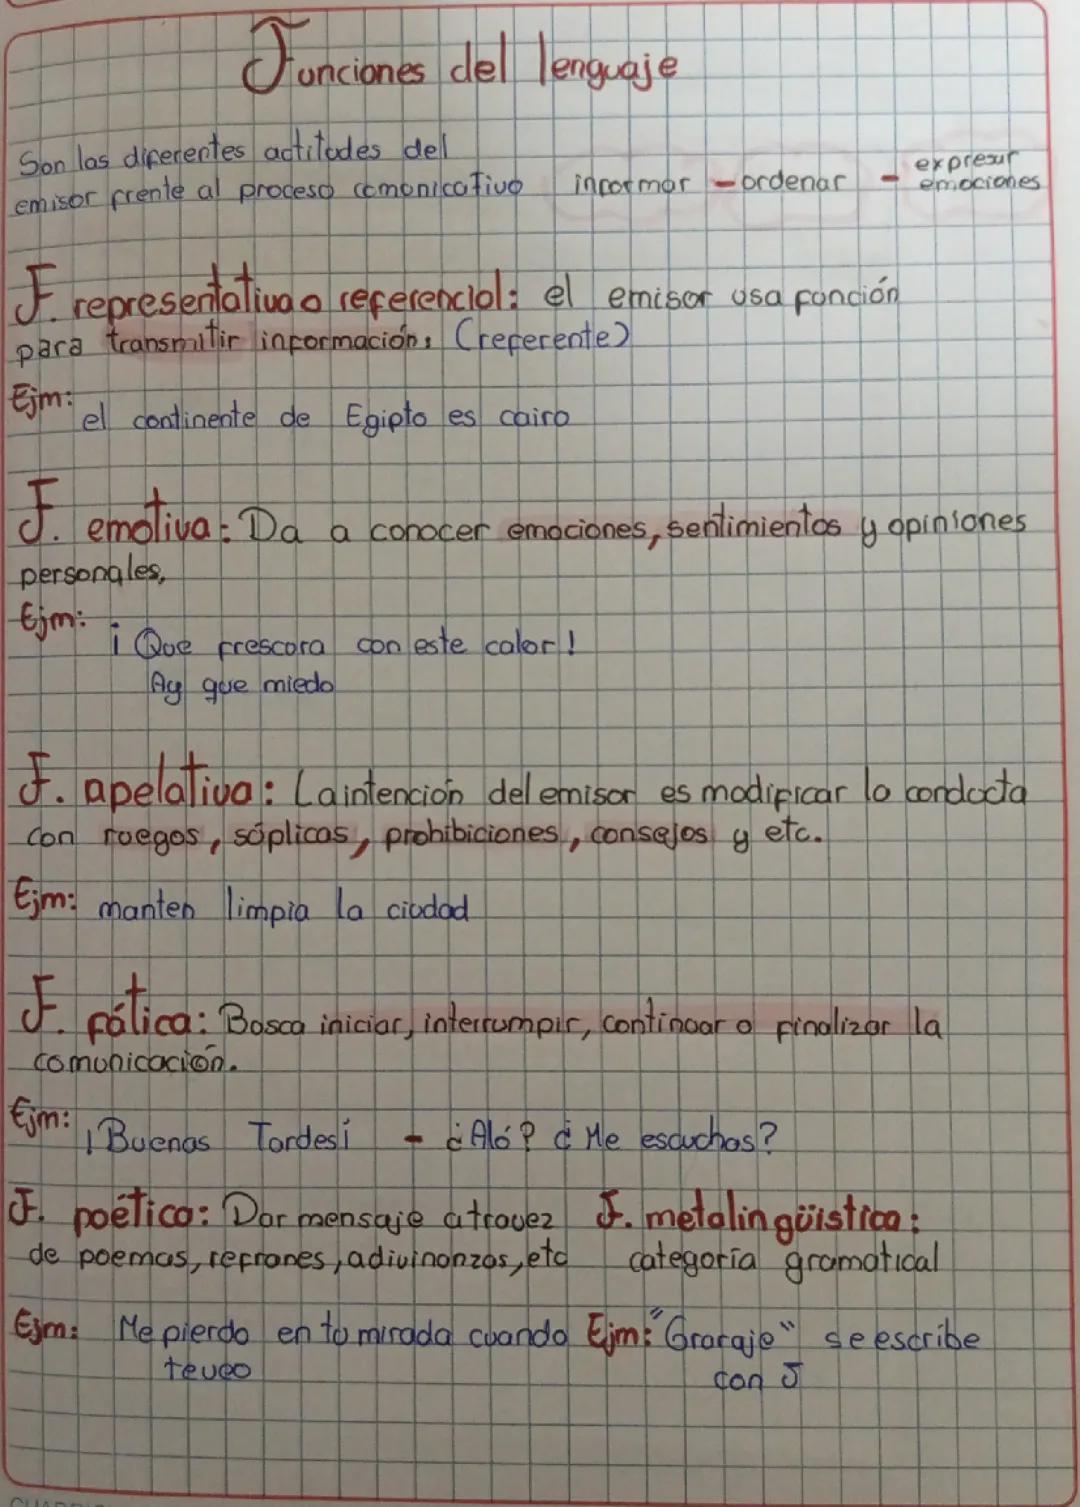 Funciones del lenguaje
Son las diferentes actitudes del
emisor frente al proceso comunicativo informar - ordenar - expresar
emociones
F. representativa o referencial: el emisor usa función
para transmitir información, (referente)
Ejm:
el continente de Egipto es cairo
F. emotiva: Da a conocer emociones, sentimientos y opiniones
personales,
Ejm:
¡Que frescura con este calor!
Ay que miedo
F. apelativa: La intención del emisor es modificar la conducta
con ruegos, súplicas, prohibiciones, consejos y etc.
Ejm: manten limpia la ciudad
F. fática: Busca iniciar, interrumpir, continuar o finalizar la
comunicación.
Ejm:
¡Buenas Tardes¡ - ¿Aló? ¿Me escuchas?
F. poética: Dar mensaje a travez
de poemas, refranes, adivinanzas, etc
Ejm: Me pierdo en tu mirada cuando
te veo
F. metalingüistica:
categoría gramatical
Ejm: "Gracaje" se escribe
con J
CUADRI